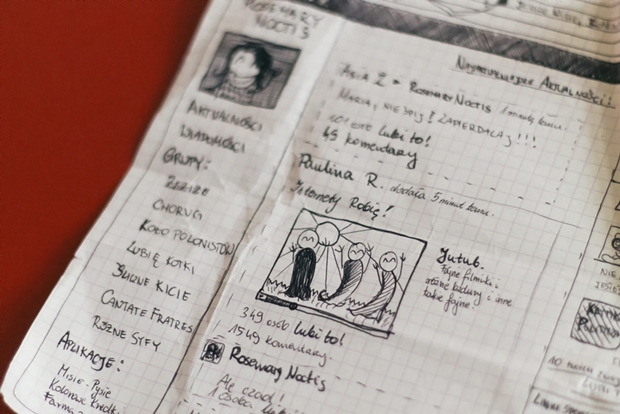 ROSEMARY
NOCTIS
AKTUALNOŚCI
WIADOMOŚCI
GRUPY:
ZEZIZE
CHORUG
KOŁO POLONISTÓW
LUBIĘ KOTKI
ŚLICZNE KICIE
CANTATE FRATRES
RÓŻNE SYFY
APLIKACJE:
Misie-Pysie
Kolorowe Kredki
Farma
Najaktualniejsze Aktualności:
Asia Z. » Rosemary Noctis 1 minutę temu.
MARIAJ, NIE ŚPIJ! ZAPIERDALAJ!!!
101 osób lubi to!
45 komentarzy
Paulina R. dodała 5 minut temu.
Internety Robię!
Jutub.
Fajne filmiki i
różne bzdury i inne
takie fajne.
349 osób lubi to!
1549 komentarzy.
Rosemary Noctis
Ale czad!
1 osoba lubi
NIE
JESTE
10 minut